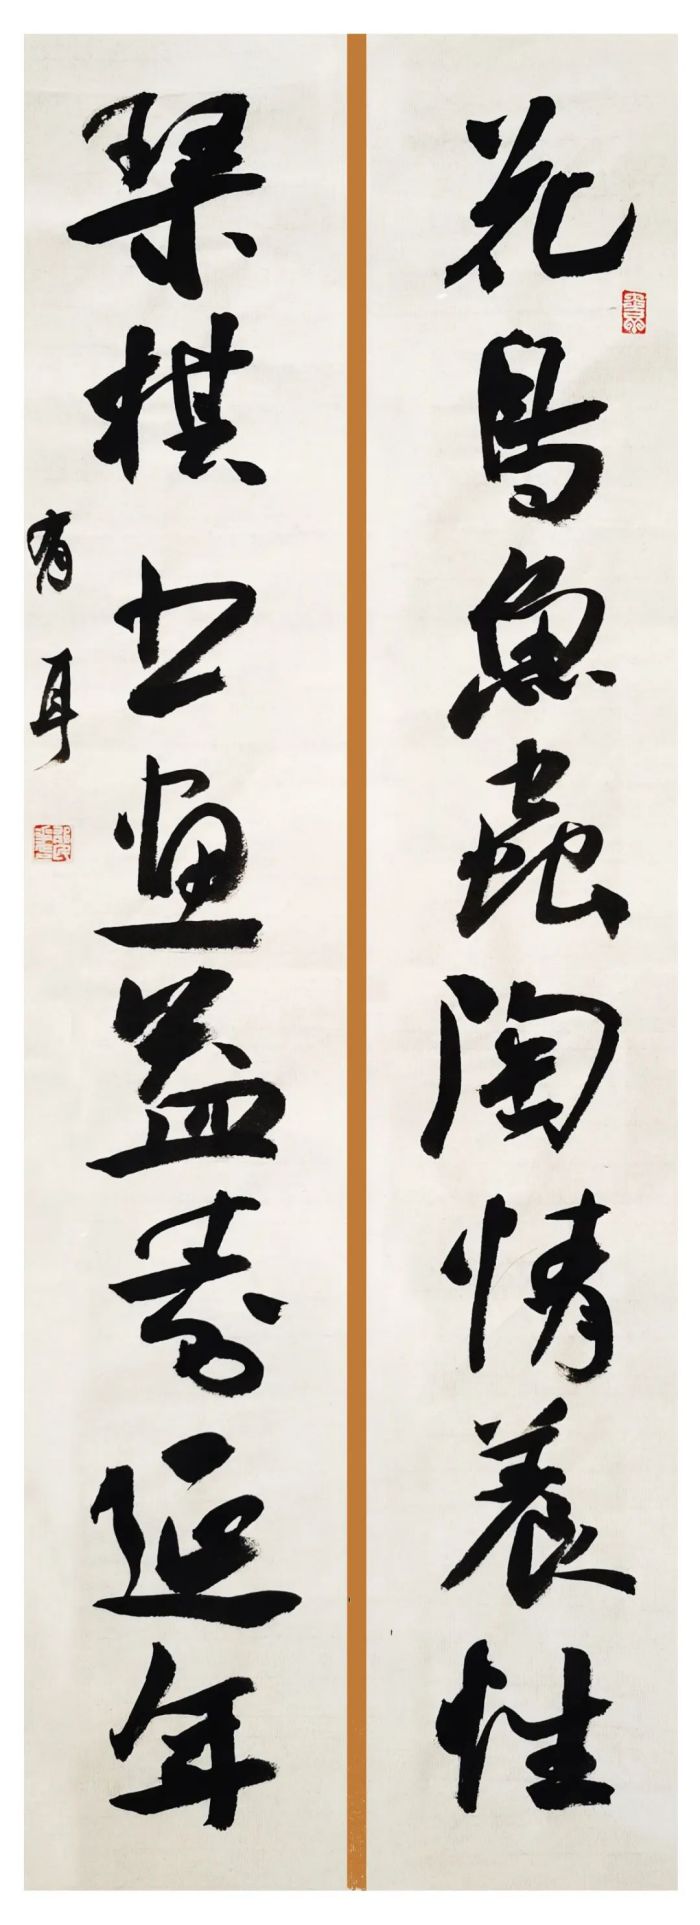 花鳥魚蟲陶情養性
琴棋书画益壽延年
有耳